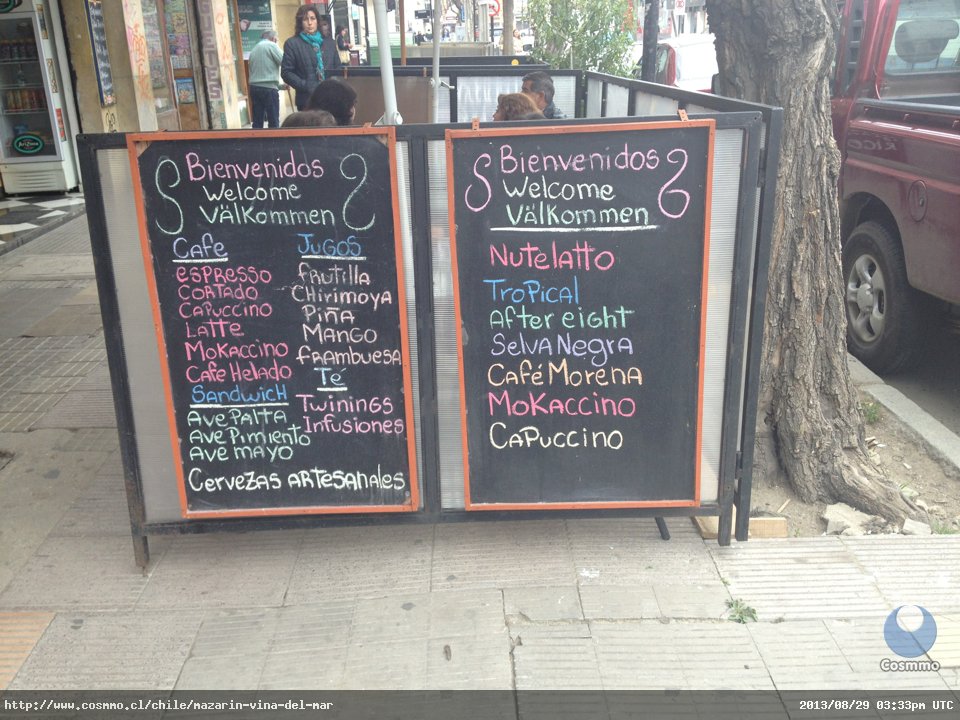 Bienvenidos
Welcome
Välkommen
Cafe
Espresso
Cortado
Capuccino
Latte
Mokaccino
Cafe Helado
Sandwich
Ave Palta
Ave Pimiento
Ave mayo
Jugos
frutilla
Chirimoya
Piña
Mango
frambuesa
Té
Twinings
Infusiones
Cervezas Artesanales
Bienvenidos
Welcome
Välkommen
Nutelatto
Tropical
After eight
Selva Negra
Café Morena
Mokaccino
Capuccino
AriZona
Cosmmo
http://www.cosmmo.cl/chile/mazarin-vina-del-mar
2013/08/29 03:33pm UTC